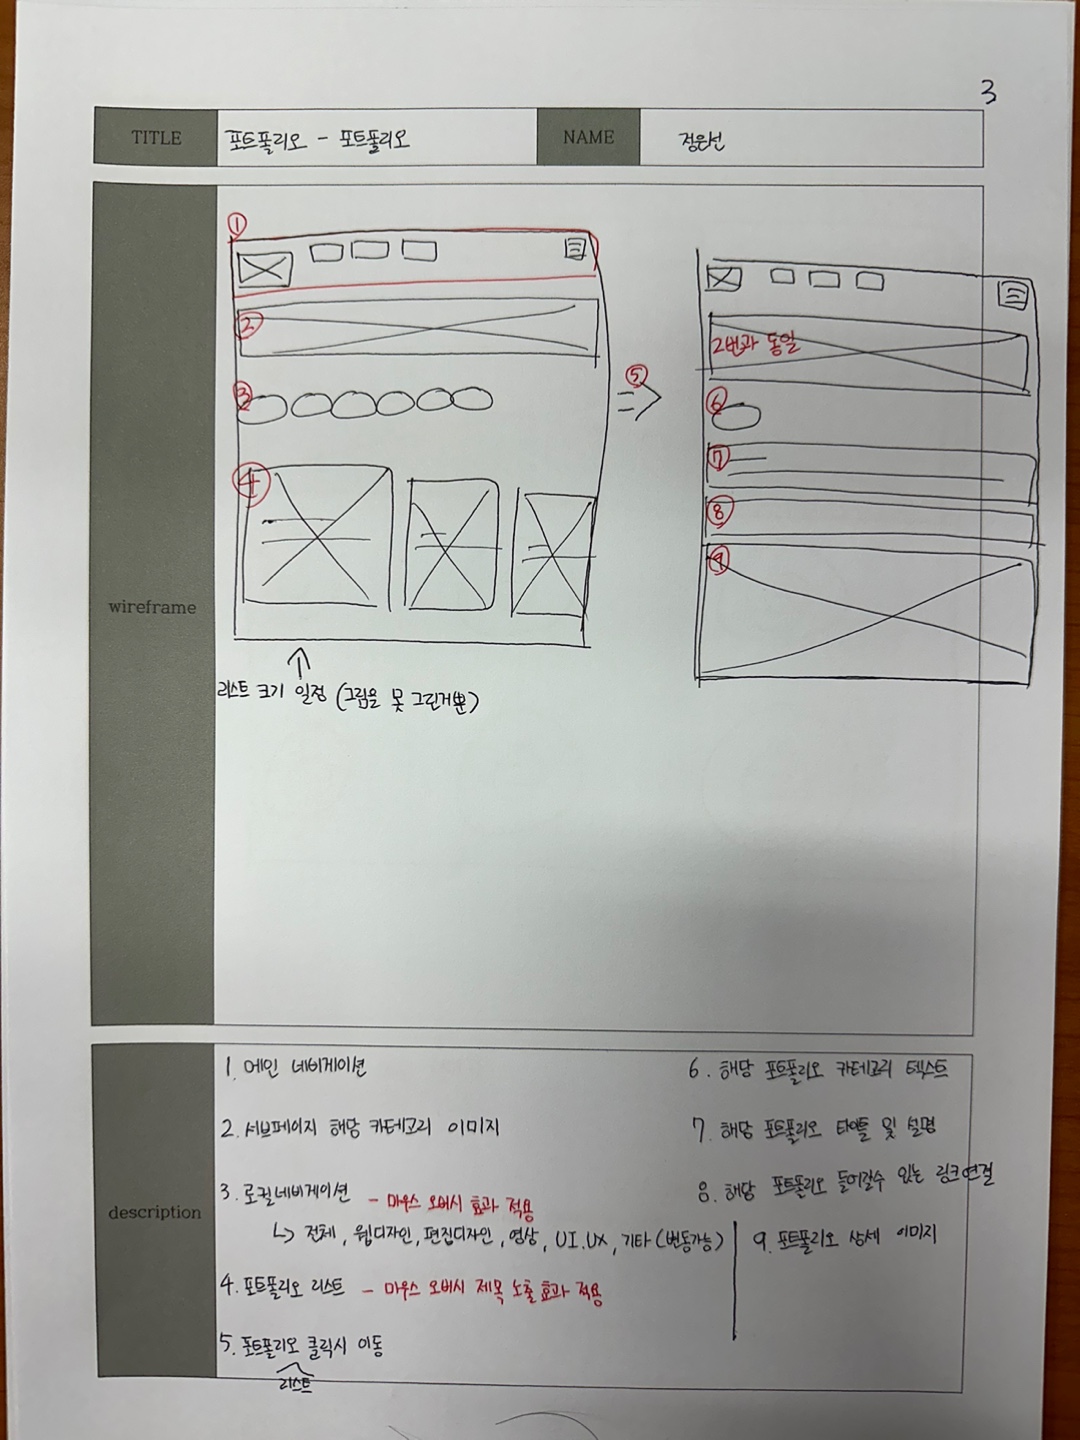 3
TITLE
포트폴리오 - 포트폴리오
NAME
정은선
wireframe
①
②
③
④
리스트 크기 일정 (그림을 못 그린거뿐)
⑤
2번과 동일
⑥
⑦
⑧
⑨
description
1. 메인 네비게이션
2. 서브페이지 해당 카테고리 이미지
3. 로컬네비게이션 - 마우스 오버시 효과 적용
↳ 전체, 웹디자인, 편집디자인, 영상, UI.UX, 기타 (변동가능)
4. 포트폴리오 리스트 - 마우스 오버시 제목 노출 효과 적용
5. 포트폴리오 클릭시 이동
리스트
6. 해당 포트폴리오 카테고리 텍스트
7. 해당 포트폴리오 타이틀 및 설명
8. 해당 포트폴리오 들어갈수 있는 링크연결
9. 포트폴리오 상세 이미지